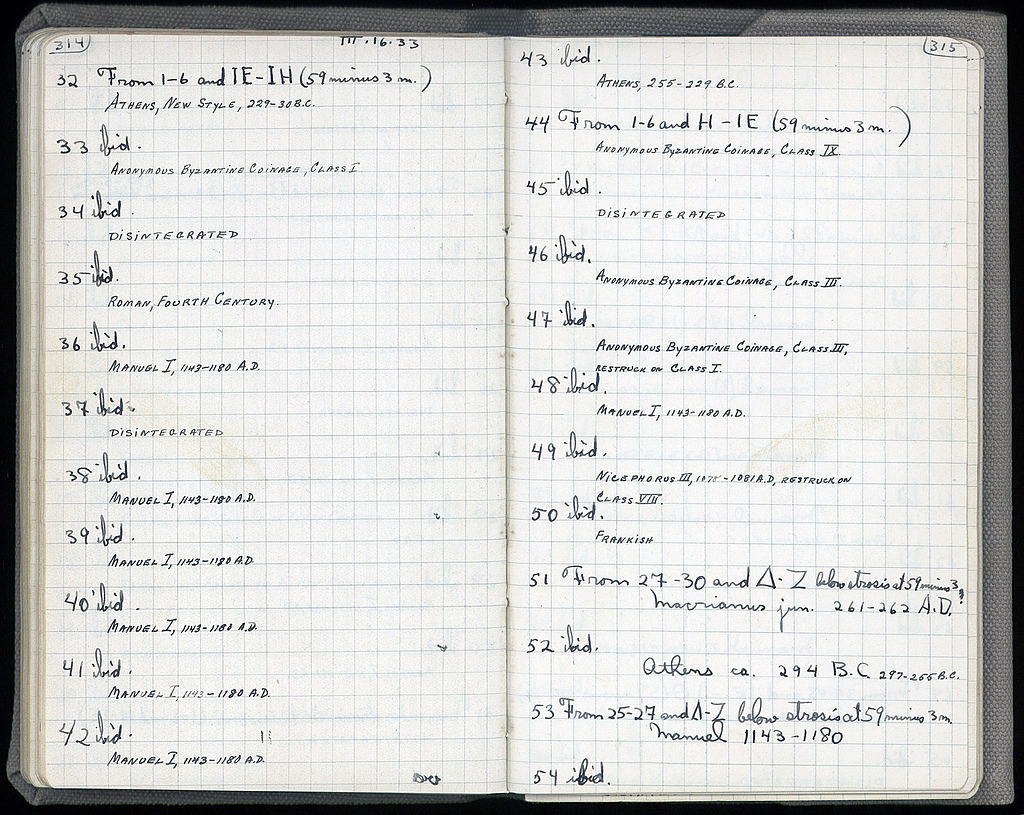 314
III.16.33
32 From 1-6 and ΙΕ-ΙΗ (59 minus 3 m.)
ATHENS, NEW STYLE, 229-30 B.C.
33 ibid.
ANONYMOUS BYZANTINE COINAGE, CLASS I
34 ibid.
DISINTEGRATED
35 ibid.
ROMAN, FOURTH CENTURY.
36 ibid.
MANUEL I, 1143-1180 A.D.
37 ibid.
DISINTEGRATED
38 ibid.
MANUEL I, 1143-1180 A.D.
39 ibid.
MANUEL I, 1143-1180 A.D.
40 ibid.
MANUEL I, 1143-1180 A.D.
41 ibid.
MANUEL I, 1143-1180 A.D.
42 ibid.
MANUEL I, 1143-1180 A.D.
315
43 ibid.
ATHENS, 255-229 B.C.
44 From 1-6 and Η-ΙΕ (59 minus 3 m.)
ANONYMOUS BYZANTINE COINAGE, CLASS IX.
45 ibid.
DISINTEGRATED
46 ibid.
ANONYMOUS BYZANTINE COINAGE, CLASS III.
47 ibid.
ANONYMOUS BYZANTINE COINAGE, CLASS III,
RESTRUCK ON CLASS I.
48 ibid.
MANUEL I, 1143-1180 A.D.
49 ibid.
NICEPHORUS III, 1078-1081 A.D, RESTRUCK ON
CLASS VIII.
50 ibid.
FRANKISH
51 From 27-30 and Δ-Ζ below strosis at 59 minus 3
Macrianus jun. 261-262 A.D.
52 ibid.
Athens ca. 294 B.C. 297-255 B.C.
53 From 25-27 and Δ-Ζ below strosis at 59 minus 3 m.
Manuel 1143-1180
54 ibid.